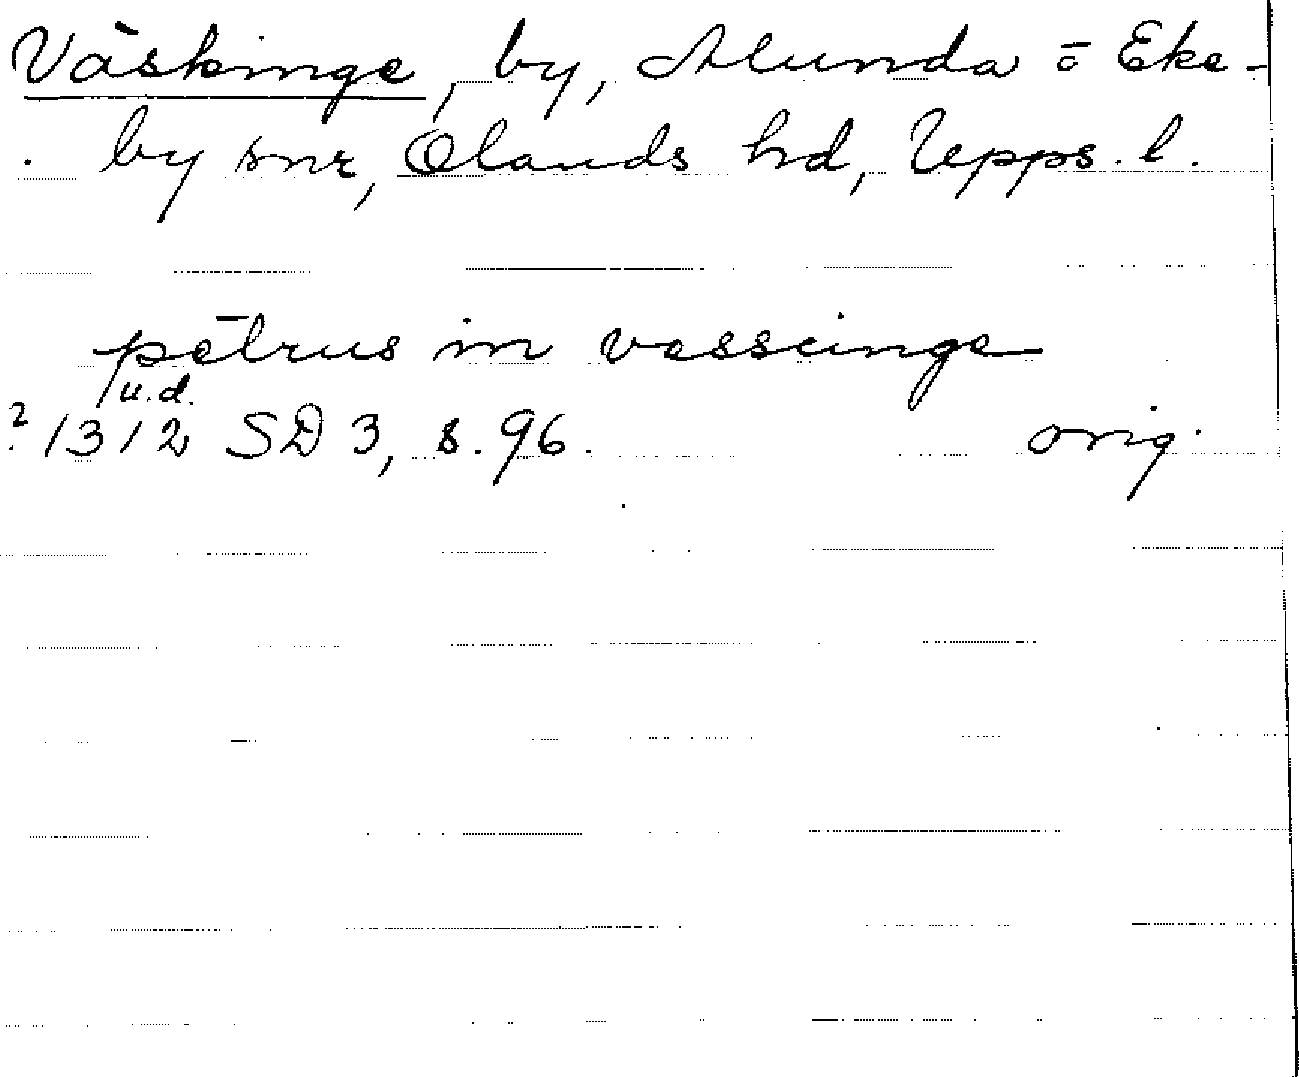 Väskinge, by, Alunda o Eke-
by snr, Olands hd, Upps. l.
petrus in vesscinge
u.d.
? 1312 SD 3, s. 96. orig.